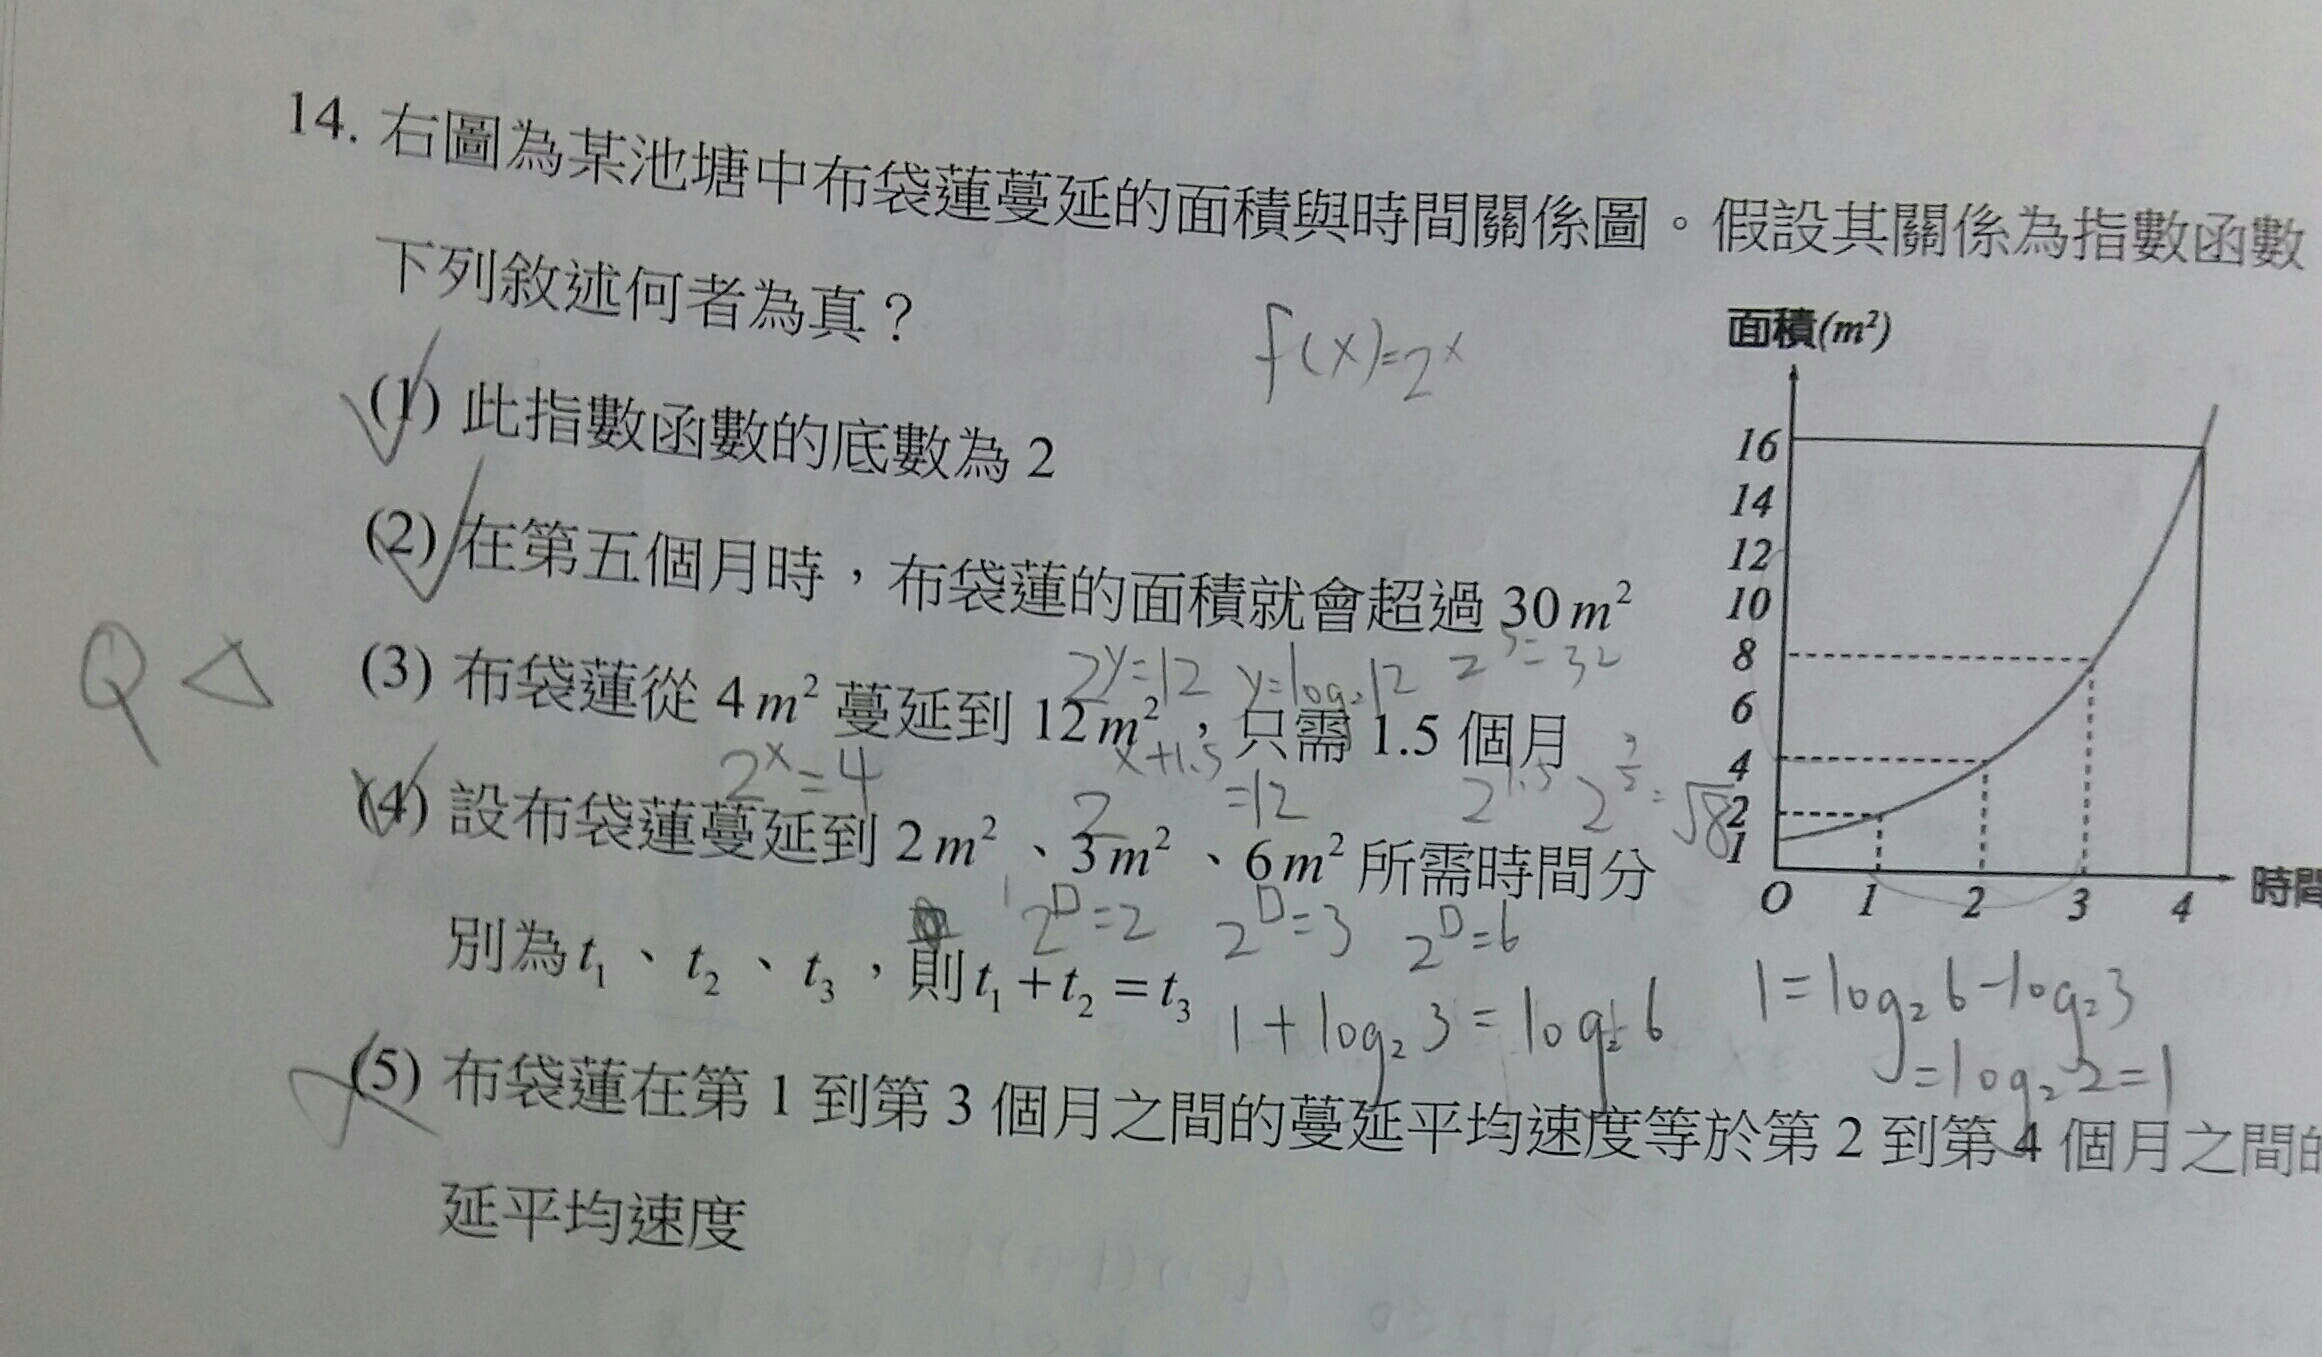 14. 右圖為某池塘中布袋蓮蔓延的面積與時間關係圖。假設其關係為指數函數
下列敘述何者為真？
f(x)=2^x
(1) 此指數函數的底數為 2
(2) 在第五個月時，布袋蓮的面積就會超過 30 m²
2^y=12 y=log₂12 2^5=32
Q △ (3) 布袋蓮從 4 m² 蔓延到 12 m²，只需 1.5 個月
2^x=4 2^{x+1.5}=12 2^{1.5} =√8
(4) 設布袋蓮蔓延到 2 m²、3 m²、6 m² 所需時間分
2^D=2 2^D=3 2^D=6
別為 t₁、t₂、t₃，則 t₁+t₂=t₃
1+log₂3=log₂6
1=log₂6-log₂3
=log₂2=1
(5) 布袋蓮在第 1 到第 3 個月之間的蔓延平均速度等於第 2 到第 4 個月之間的
延平均速度
面積(m²)
16
14
12
10
8
6
4
2
1
O 1 2 3 4 時間